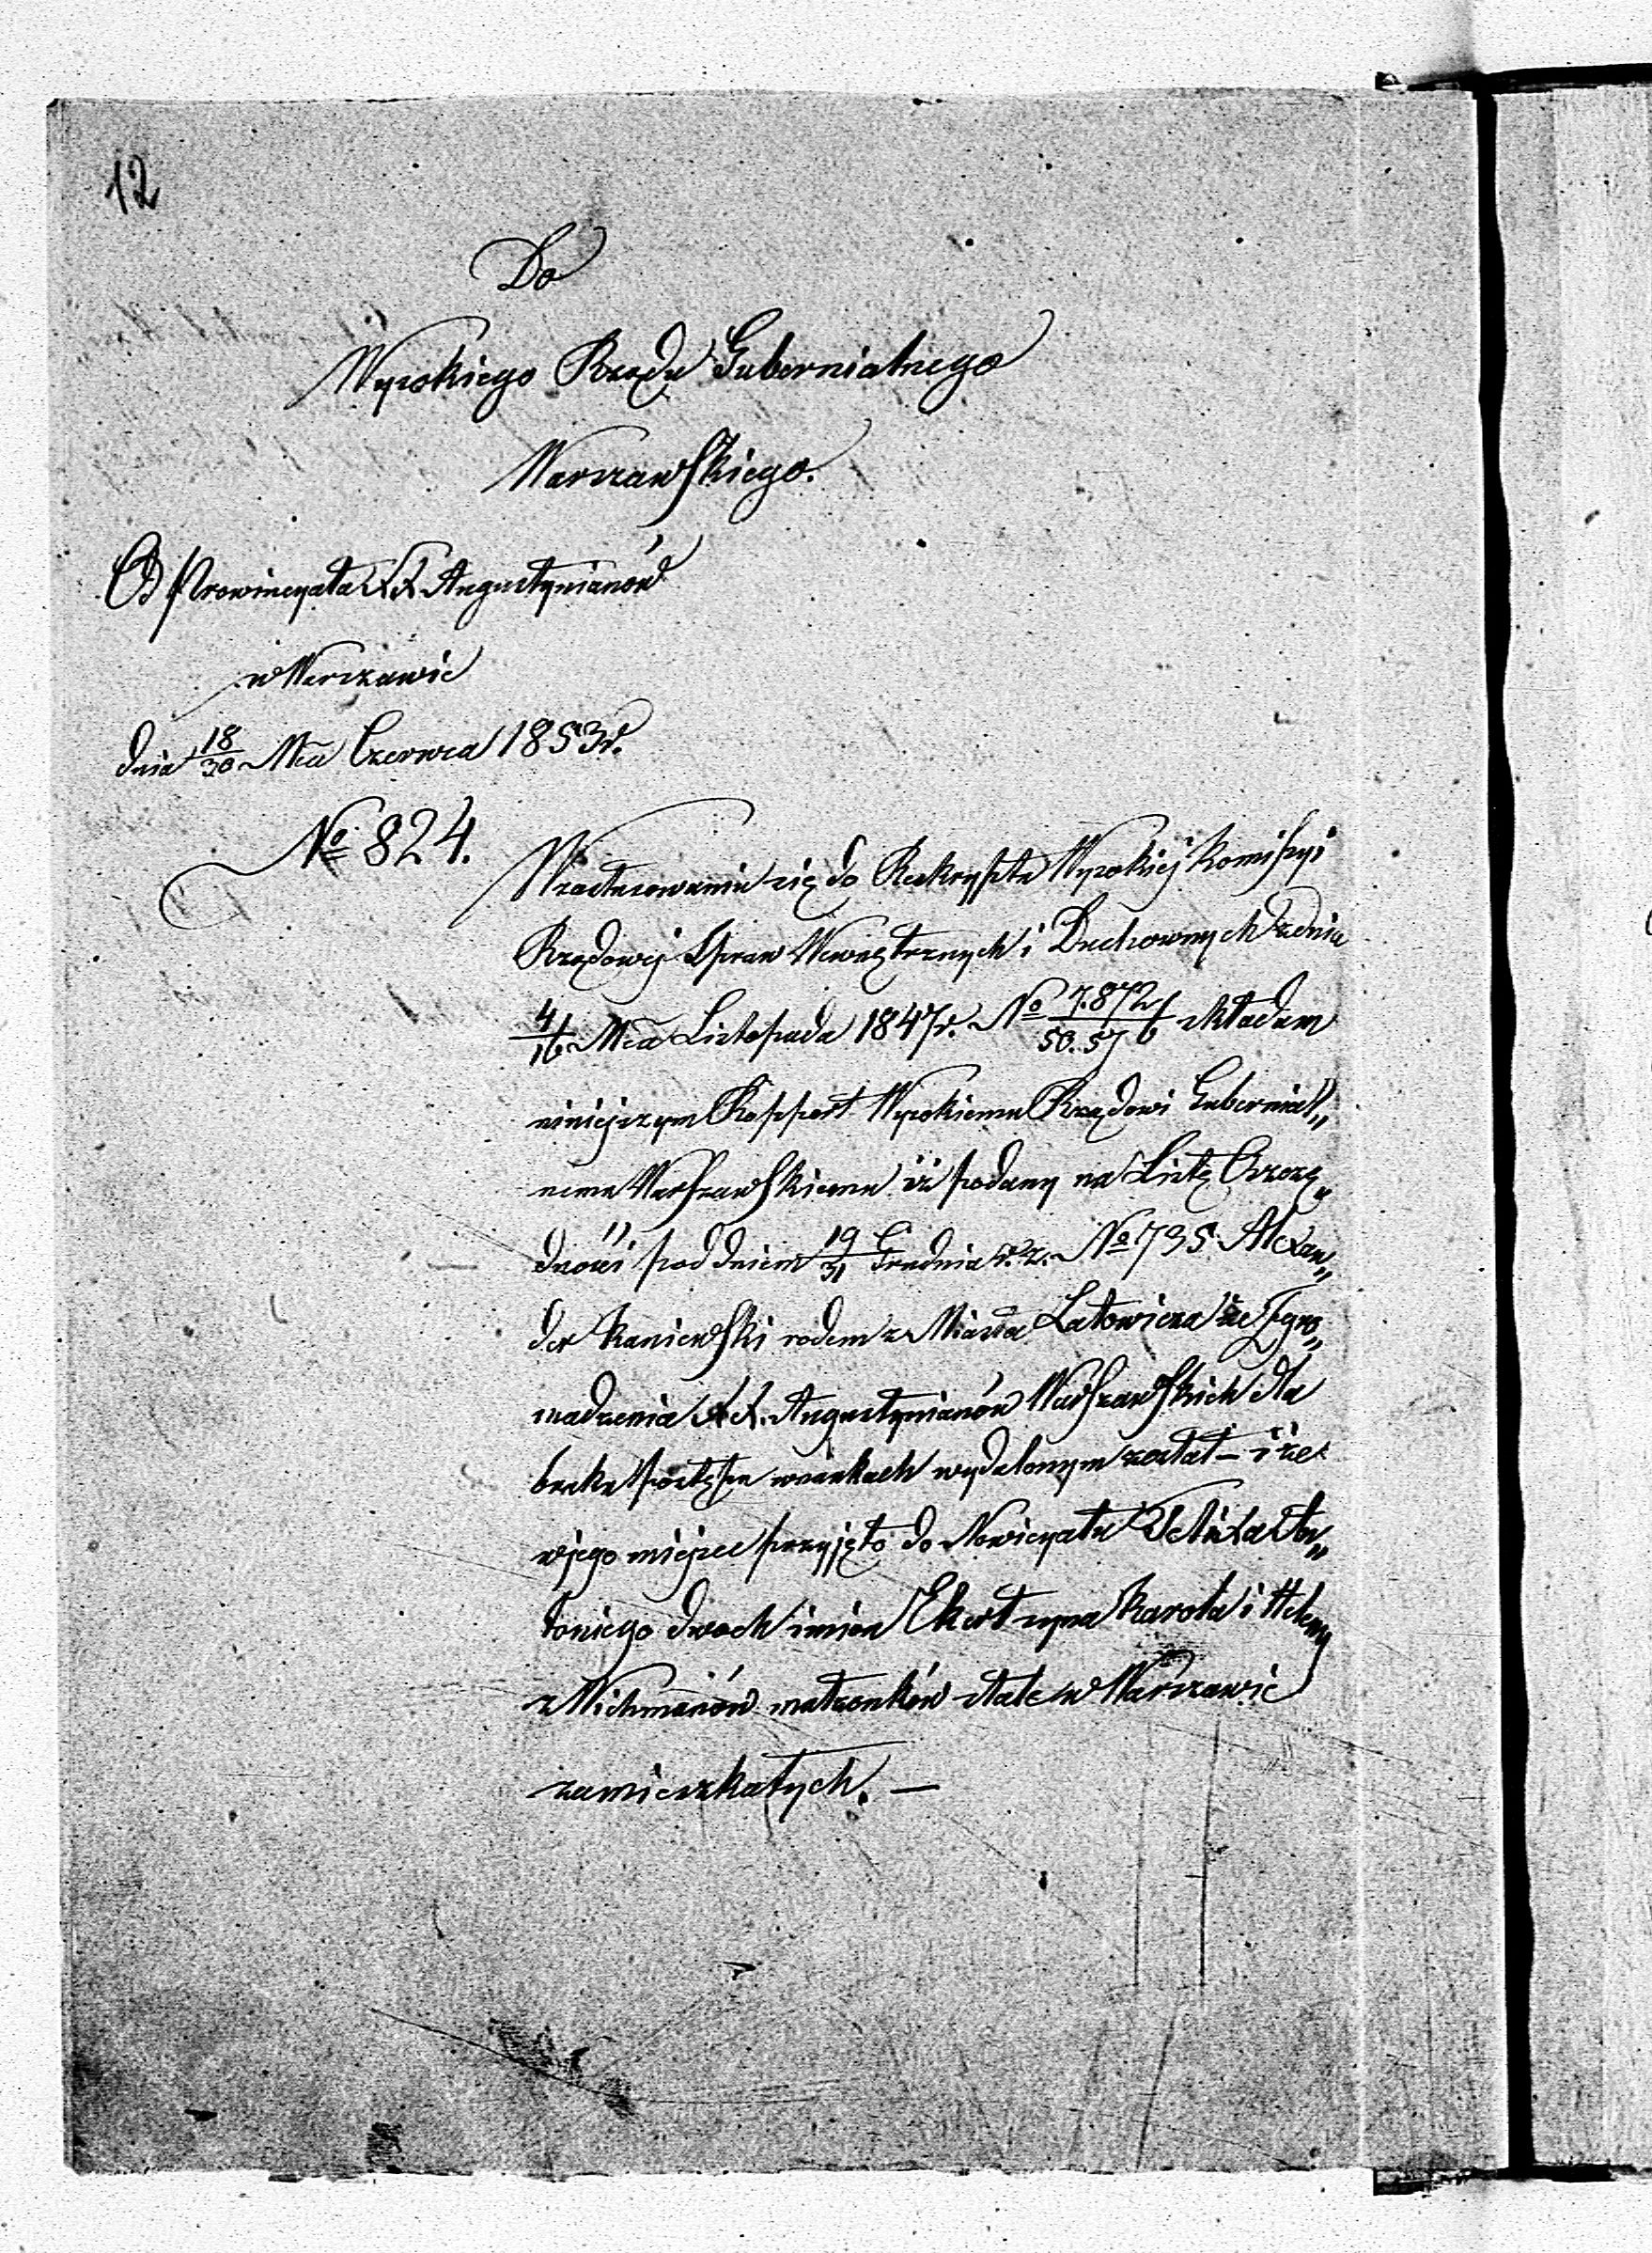 12
Do
Wysokiego Rządu Gubernialnego
Warszawskiego.
Od Prowincyała XX. Augustynianów
w Warszawie
dnia 18/30 Mca Czerwca 1853 r.
№ 824.
W zastosowaniu się do Reskryptu Wysokiej Komissyi
Rządowej Spraw Wewnętrznych i Duchownych z dnia
4/16 Mca Listopada 1847 r. № składam
niniejszym Rapport Wysokiemu Rządowi Gubernial„
nemu Warszawskiemu iż podany na Listę
pod dniem 19/31 Grudnia r. z. № 735 Alexan„
der Kaniewski rodem z Miasta Latowicza ze Zgro„
madzenia XX. Augustynianów Warszawskich dla
braku postępu w naukach wydalonym został – i że
w jego miejsce przyjęto do Nowicyatu Felixa An„
toniego dwoch imion Ekert syna Karola i Heleny
z Wichmanów małżonków stale w Warszawie
zamieszkałych. —